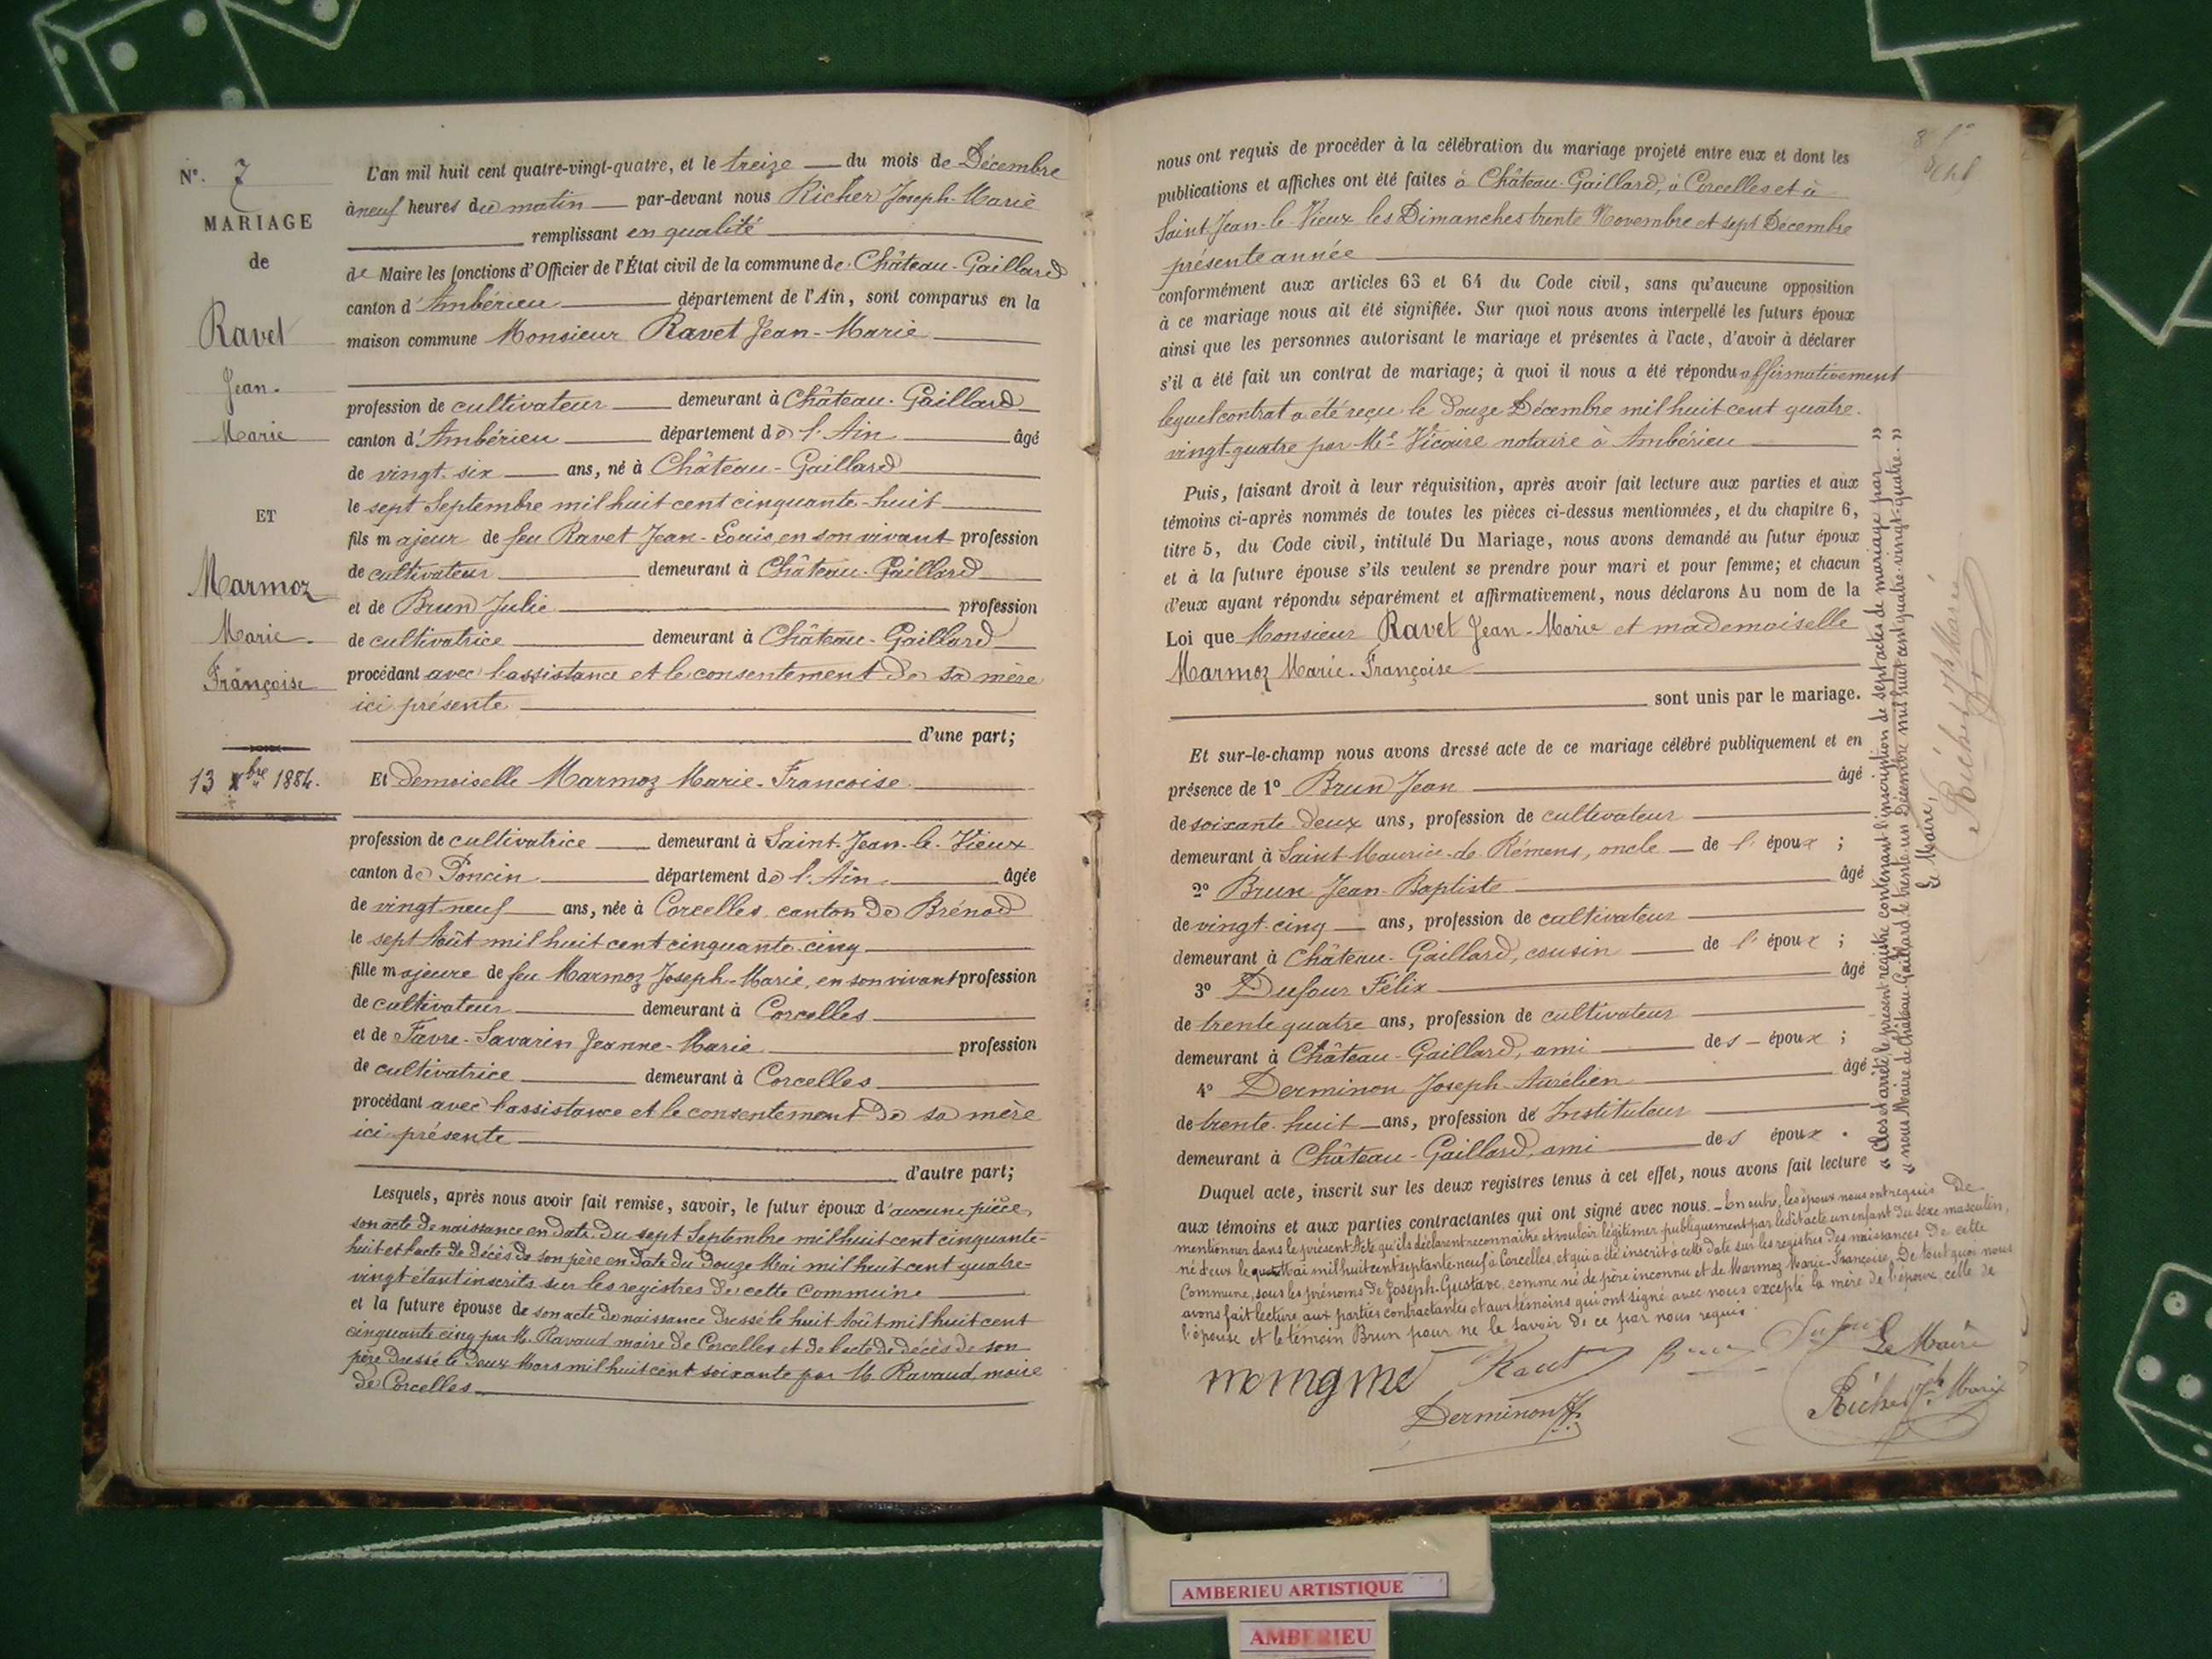 N°. 7
MARIAGE
de
Ravet
Jean-
Marie
ET
Marmoz
Marie-
Françoise
13 Xbre 1884.
L'an mil huit cent quatre-vingt-quatre, et le treize du mois de Décembre
à neuf heures du matin par-devant nous Richer Joseph-Marie
remplissant en qualité
de Maire les fonctions d'Officier de l'État civil de la commune de Château-Gaillard
canton d'Ambérieu département de l'Ain, sont comparus en la
maison commune Monsieur Ravet Jean-Marie
profession de cultivateur demeurant à Château-Gaillard
canton d'Ambérieu département de l'Ain âgé
de vingt-six ans, né à Château-Gaillard
le sept Septembre mil huit cent cinquante-huit
fils majeur de feu Ravet Jean-Louis, en son vivant profession
de cultivateur demeurant à Château-Gaillard
et de Brun Julie profession
de cultivatrice demeurant à Château-Gaillard
procédant avec l'assistance et le consentement de sa mère
ici présente
d'une part;
Et Demoiselle Marmoz Marie-Francoise
profession de cultivatrice demeurant à Saint-Jean-le-Vieux
canton de Poncin département de l'Ain âgée
de vingt neuf ans, née à Corcelles, canton de Brénod
le sept Août mil huit cent cinquante-cinq
fille majeure de feu Marmoz Joseph-Marie, en son vivant profession
de cultivateur demeurant à Corcelles
et de Favre-Savarin Jeanne-Marie profession
de cultivatrice demeurant à Corcelles
procédant avec l'assistance et le consentement de sa mère
ici présente
d'autre part;
Lesquels, après nous avoir fait remise, savoir, le futur époux d'aucune pièce,
son acte de naissance en date du sept Septembre mil huit cent cinquante-
huit et l'acte de décès de son père en date du douze Mai mil huit cent quatre-
vingt étant inscrits sur les registres de cette Commune
et la future épouse de son acte de naissance dressé le huit Août mil huit cent
cinquante cinq par M. Ravaud maire de Corcelles et de l'acte de décès de son
père dressé le deux Mars mil huit cent soixante par M. Ravaud, maire
de Corcelles
nous ont requis de procéder à la célébration du mariage projeté entre eux et dont les
publications et affiches ont été faites à Château-Gaillard, à Corcelles et à
Saint-Jean-le-Vieux les Dimanches trente Novembre et sept Décembre
présente année
conformément aux articles 63 et 64 du Code civil, sans qu'aucune opposition
à ce mariage nous ait été signifiée. Sur quoi nous avons interpellé les futurs époux
ainsi que les personnes autorisant le mariage et présentes à l'acte, d'avoir à déclarer
s'il a été fait un contrat de mariage; à quoi il nous a été répondu affirmativement
lequel contrat a été reçu le Douze Décembre mil huit cent quatre-
vingt-quatre par Me Vicaire notaire à Ambérieu
Puis, faisant droit à leur réquisition, après avoir fait lecture aux parties et aux
témoins ci-après nommés de toutes les pièces ci-dessus mentionnées, et du chapitre 6,
titre 5, du Code civil, intitulé Du Mariage, nous avons demandé au futur époux
et à la future épouse s'ils veulent se prendre pour mari et pour femme; et chacun
d'eux ayant répondu séparément et affirmativement, nous déclarons Au nom de la
Loi que Monsieur Ravet Jean-Marie et mademoiselle
Marmoz Marie-Françoise
sont unis par le mariage.
Et sur-le-champ nous avons dressé acte de ce mariage célébré publiquement et en
présence de 1° Brun Jean âgé
de soixante deux ans, profession de cultivateur
demeurant à Saint-Maurice-de-Rémens, oncle de l'époux ;
2° Brun Jean-Baptiste âgé
de vingt-cinq ans, profession de cultivateur
demeurant à Château-Gaillard, cousin de l'époux ;
3° Dufour Félix âgé
de trente quatre ans, profession de cultivateur
demeurant à Château-Gaillard, ami des époux ;
4° Derminon Joseph-Aurélien âgé
de trente-huit ans, profession de Instituteur
demeurant à Château-Gaillard, ami des époux.
Duquel acte, inscrit sur les deux registres tenus à cet effet, nous avons fait lecture
aux témoins et aux parties contractantes qui ont signé avec nous. - En outre, les époux nous ont requis de
mentionner dans le présent Acte qu'ils déclarent reconnaître et vouloir légitimer publiquement par ledit acte un enfant du sexe masculin,
né d'eux le Mai mil huit cent septante-neuf à Corcelles, et qui a été inscrit à cette date sur les registres des naissances de cette
Commune, sous les prénoms de Joseph-Gustave, comme né de père inconnu et de Marmoz Marie-Françoise. De tout quoi nous
avons fait lecture aux parties contractantes et aux témoins qui ont signé avec nous excepté la mère de l'époux, celle de
l'épouse et le témoin Brun pour ne le savoir de ce par nous requis.
Ravet Brun Dufour Le Maire
Derminon Richer Jph Marie
« Clos et arrêté le présent registre contenant l'inscription de sept actes de mariage par »
« nous Maire de Château-Gaillard le trente-un Décembre mil huit cent quatre-vingt-quatre. »
Le Maire,
Richer Jph Marie
AMBERIEU ARTISTIQUE
AMBERIEU